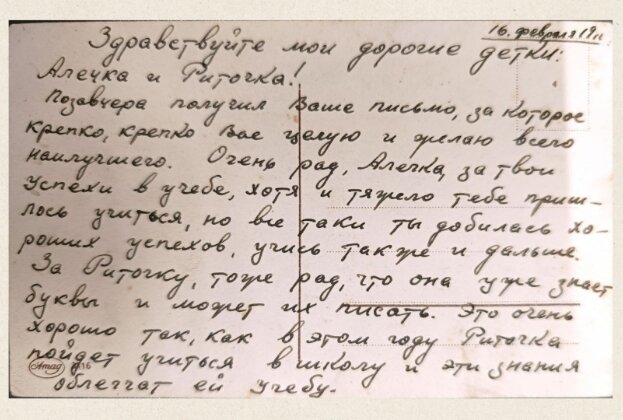 16. февраля 19
Здравствуйте мои дорогие детки:
Алечка и Риточка!
Позавчера получил Ваше письмо, за которое
крепко, крепко Вас целую и желаю всего
наилучшего. Очень рад, Алечка, за твои
успехи в учебе, хотя и тяжело тебе приш-
лось учиться, но все таки ты добилась хо-
роших успехов, учись также и дальше.
За Риточку, тоже рад, что она уже знает
буквы и может их писать. Это очень
хорошо так, как в этом году Риточка
пойдет учиться в школу и эти знания
облегчат ей учебу.
Amag 16